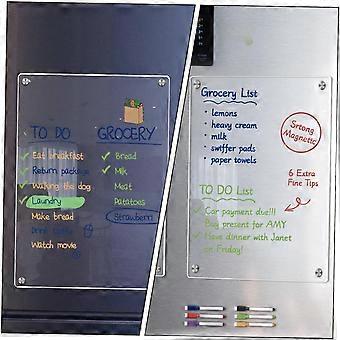 TO DO
Eat breakfast
Return package
Walking the dog
Laundry
Make bread
Drink coffee
Watch movie
GROCERY
Bread
Milk
Meat
Patatoes
Strawberri
Grocery List
lemons
heavy cream
milk
swiffer pads
paper towels
Srtong
Magnetic
6 Extra
Fine Tips
TO DO List
Car payment due!!!
Buy present for AMY
Have dinner with Janet
on Friday!